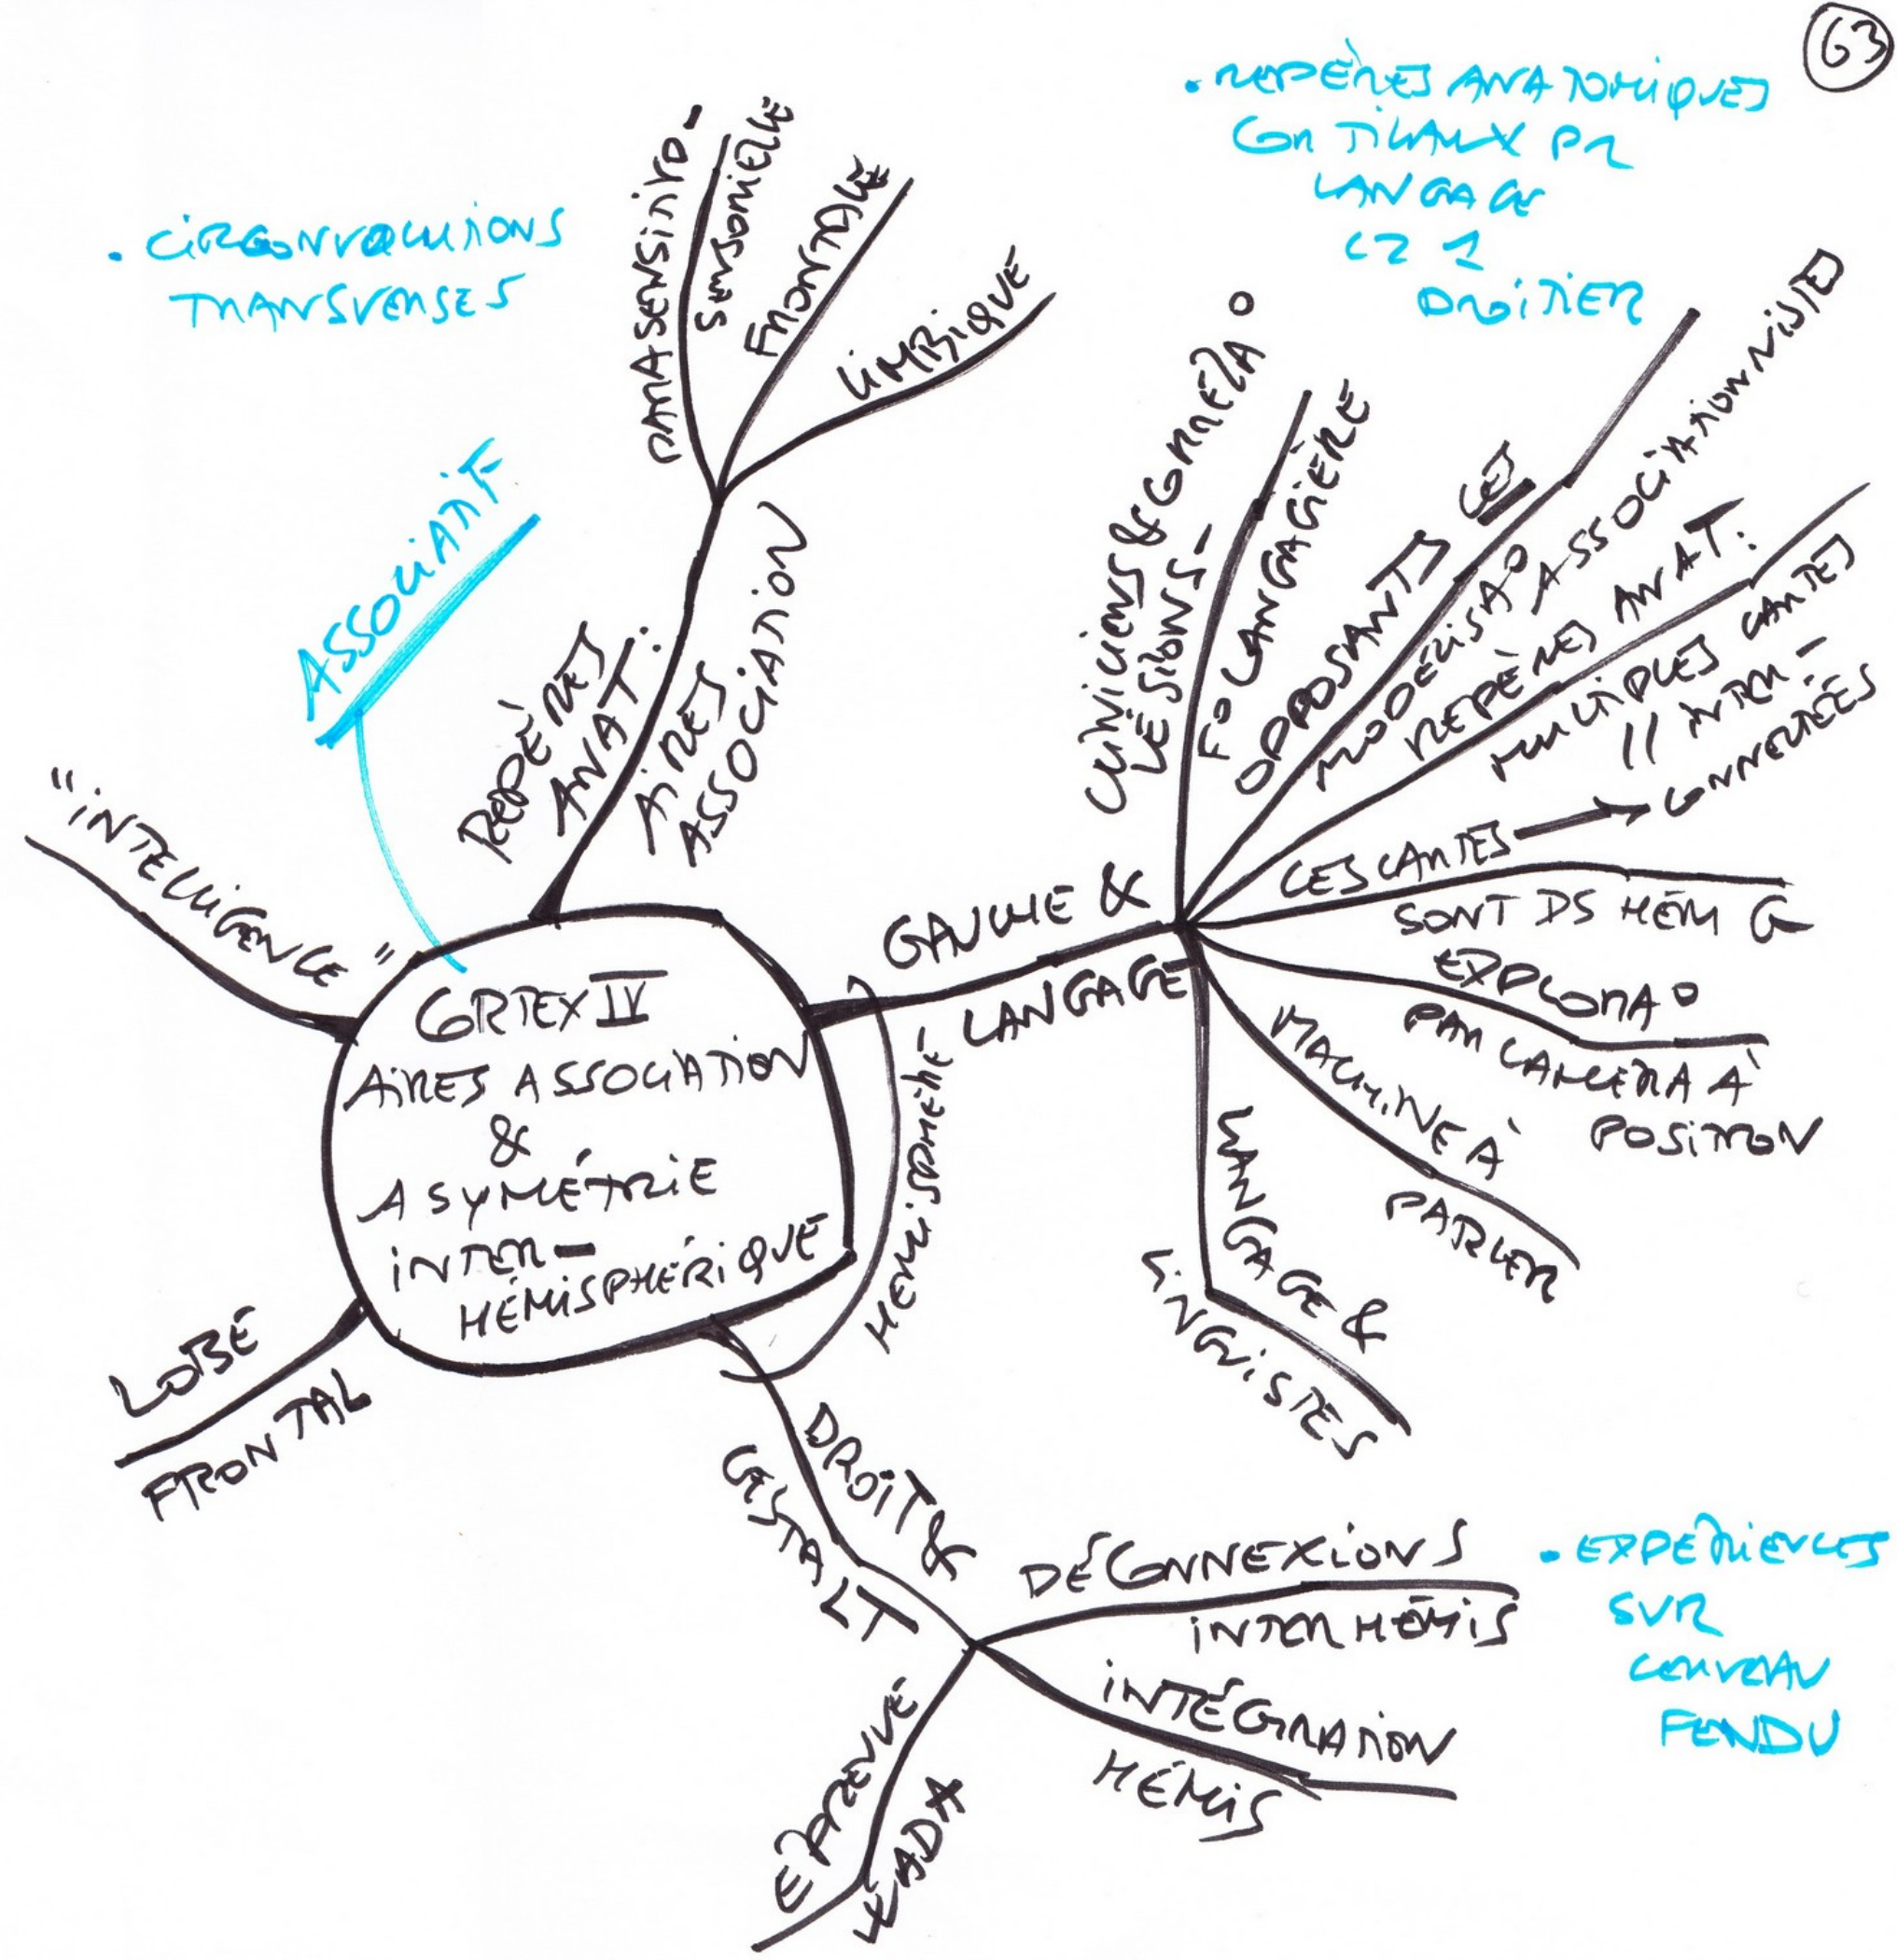 63
• REPÈRES ANATOMIQUES
CORTICAUX PR
LANGAGE
CZ 1
DROITIER
• CIRCONVOLUTIONS
TRANSVERSES
ASSOCIATIF
"INTELLIGENCE"
REPÈRES
ANAT.
AIRES
ASSOCIATION
PARASENSITIVO-
SENSORIELLE
FRONTALE
LIMBIQUE
CORTEX IV
AIRES ASSOCIATION
&
ASYMÉTRIE
INTER-
HÉMISPHÉRIQUE
LOBE
FRONTAL
HÉMISPHÈRE
GAUCHE &
LANGAGE
CLINICIENS & CORRÉLA°
LÉSIONS-
F° LANGAGIÈRE
OPPOSANTS CES
MODÉLISA° ASSOCIATIONNISTE
REPÈRES ANAT.
MULTIPLES CARTES
// INTER-
CONNECTÉES
CES CARTES →
SONT DS HÉM G
EXPLORA°
PAR CAMÉRA À
POSITRON
MACHINE À
PARLER
LANGAGE &
LINGUISTES
DROIT &
GESTALT
DÉCONNEXIONS
INTERHÉMIS
INTÉGRATION
HÉMIS
ÉPREUVE
WADA
• EXPÉRIENCES
SUR
CERVEAU
FENDU